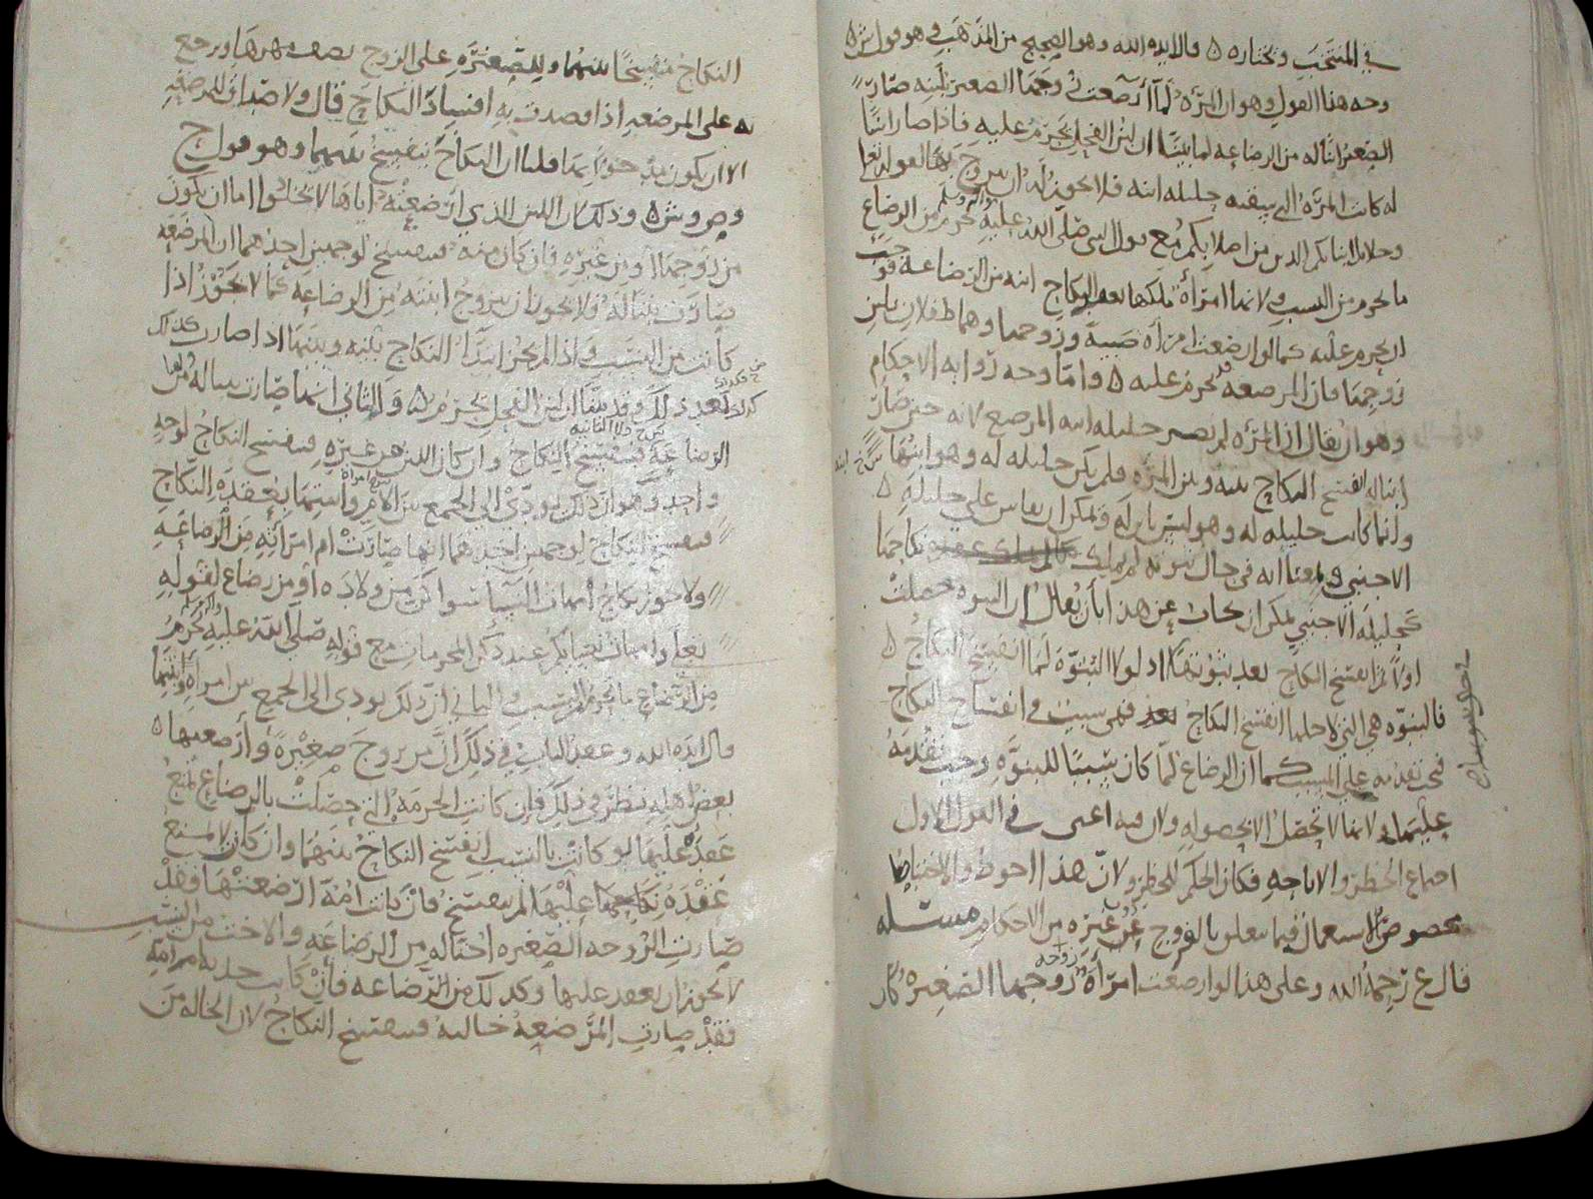 في المنتخب ونختاره ٥ قال ايده الله وهو الصحيح من المذهب وهو قول ش ٥
وجه هذا القول وهو ان المرأة لما أرضعت زوجها الصغير بلبنه صار
الصغير ابنا له من الرضاعة لما بينا ان لبن الفحل يحرم عليه فاذا صار ابنا
له كانت المرأة التي سقته حليلة ابنه فلا يجوز له ان يتزوج بها لقوله تعالى
وحلائل ابنائكم الذين من اصلابكم مع قول النبي صلى الله عليه وآله وسلم يحرم من الرضاع
ما يحرم من النسب ولانها امرأة ملكها بعقد النكاح ابنه من الرضاعة فوجب
ان يحرم عليه كما لو ارضعت امرأة صبية وزوجها وهما طفلان بلبن
زوجها فان المرضعة تحرم عليه ٥ واما وجه رواية الاحكام
وهو ان يقال ان المرأة لم تصر حليلة ابنه المرضع لانه حين صار
ابنا له انفسخ النكاح بينه وبين المرأة فلم تكن حليلة له وهو ابنها
وانما كانت حليلة له وهو ليس بابن له فيمكن ان يقاس على حليلة ٥
الاجنبي والمعنى انه في حال بنوته لم يملك نكاحها
كحليلة الاجنبي يمكن ان يجاب عن هذا بأن يقال ان البنوة حصلت
اولا ثم انفسخ النكاح بعد ثبوتها اذ لولا البنوة لما انفسخ النكاح ٥
فالبنوة هي التي لاجلها انفسخ النكاح بعد فهي سبب في انفساخ النكاح
فيجب تقدمه على المسبب كما ان الرضاع لما كان سببا للبنوة وجب تقدمه
عليها لانها لا تحصل الا بحصوله ولان فيه اعني في القول الاول
اجتماع الحظر والاباحة فكان الحكم للحظر ولان هذا احوط والاحتياط
مخصوص بالاستعمال فيما يتعلق بالفروج عن غيره من الاحكام مسئلة
قال ع رحمه الله وعلى هذا لو ارضعت امرأة زوجة زوجها الصغيرة كان
النكاح منفسخا بينهما وللصغيرة على الزوج نصف مهرها ويرجع
به على المرضعة اذا قصدت به افساد النكاح قال ولا صداق للمرضعة
الا ان يكون دخل بها قلنا ان النكاح ينفسخ بينهما وهو قول ح
وص وش ٥ وذلك ان اللبن الذي ارضعته اياها لا يخلوا اما ان يكون
من زوجها او من غيره فان كان منه فينفسخ لوجهين احدهما ان المرضعة
صارت بنتا له ولا يجوز ان يتزوج ابنته من الرضاعة كما لا يجوز اذا
كانت من النسب واذا لم يجز ابتداء النكاح بينه وبينها اذا صارت كذلك
كذلك بعد ذلك وقد بينا ان لبن الفحل يحرم ٥ والثاني انها صارت بنتا له من
الرضاعة فينفسخ النكاح وان كان اللبن من غيره فينفسخ النكاح لوجه
واحد وهو ان ذلك يودي الى الجمع بين الأم وابنتها بعقدة النكاح
فينفسخ النكاح لوجهين احدهما انها صارت ام امرأته من الرضاعة
ولا يجوز نكاح امهات النساء سواء كن من ولادة أو من رضاع لقوله
تعالى وامهات نسائكم عند ذكر المحرمات مع قوله صلى الله عليه وآله يحرم
من الرضاع ما يحرم من النسب والثاني ان ذلك يودي الى الجمع بين امرأة وابنتها
قال ايده الله وعقد الباب في ذلك ان من يزوج صغيرة وأرضعتها ٥
بعض اهله ينظر في ذلك فإن كانت الحرمة التي حصلت بالرضاع تمنع
عقده عليها لو كانت بالنسب انفسخ النكاح بينهما وان كان لا يمنع
عقده نكاحها عليها لم ينفسخ فان كانت امه ارضعتها فقد
صارت الزوجة الصغيرة اختا له من الرضاعة والاخت من النسب
لا يجوز ان يعقد عليها وكذلك من الرضاعة فان كانت جدته امرأته
فقد صارت المرضعة خالته فينفسخ النكاح لان الخالة من